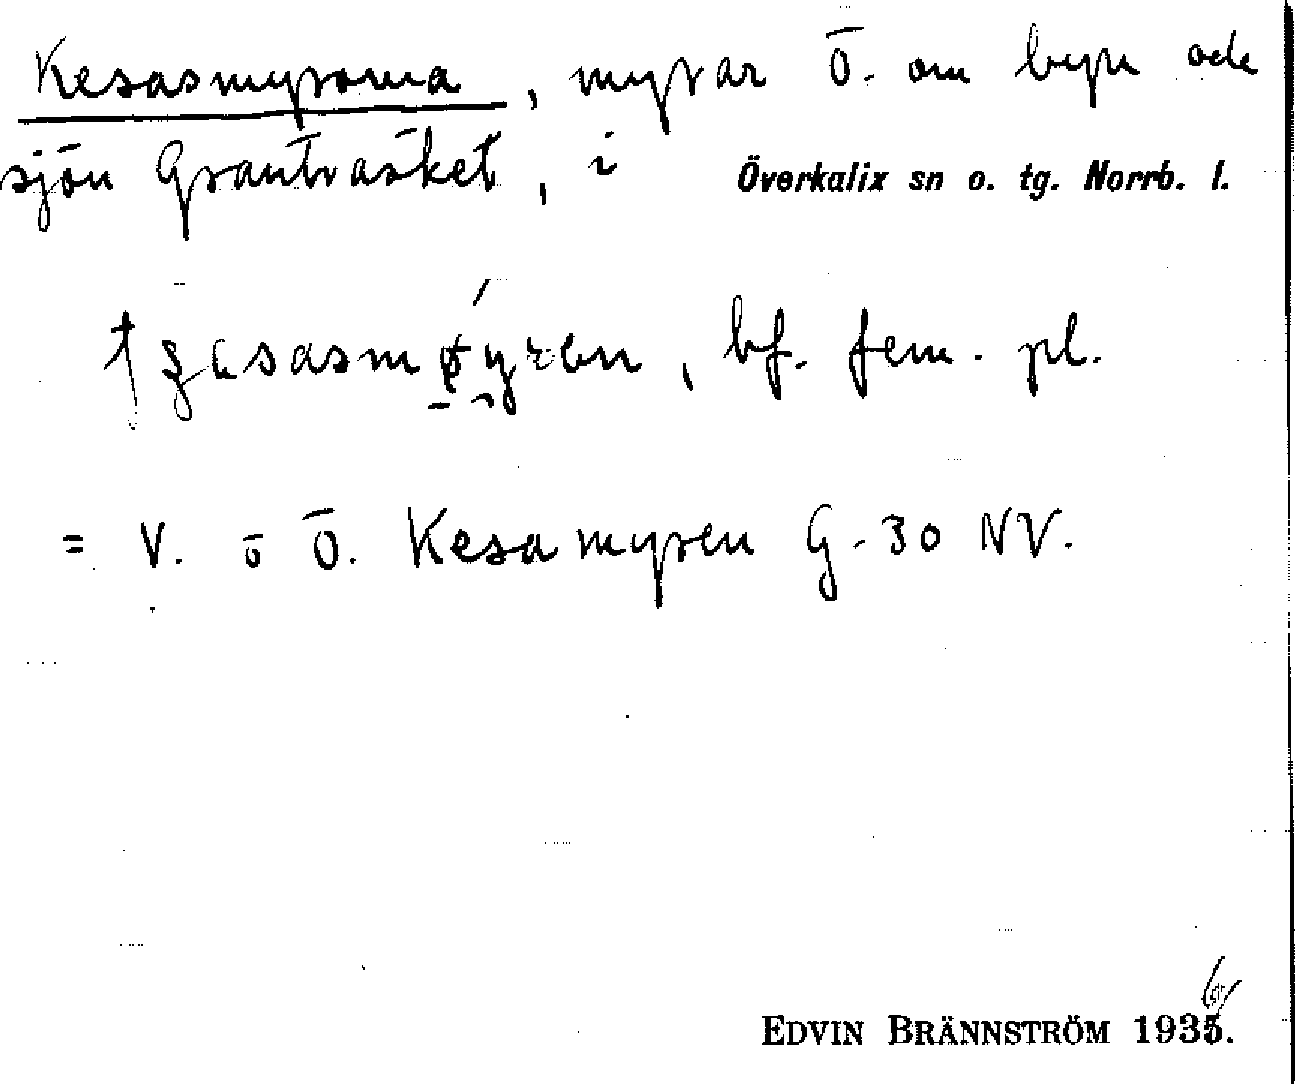 Kesasmyrorna, myrar Ö. om byn och
sjön Granträsket, i Överkalix sn o. tg. Norrb. l.
bf. fem. pl.
= V. o Ö. Kesamyren G. 30 NV.
EDVIN BRÄNNSTRÖM 1936.